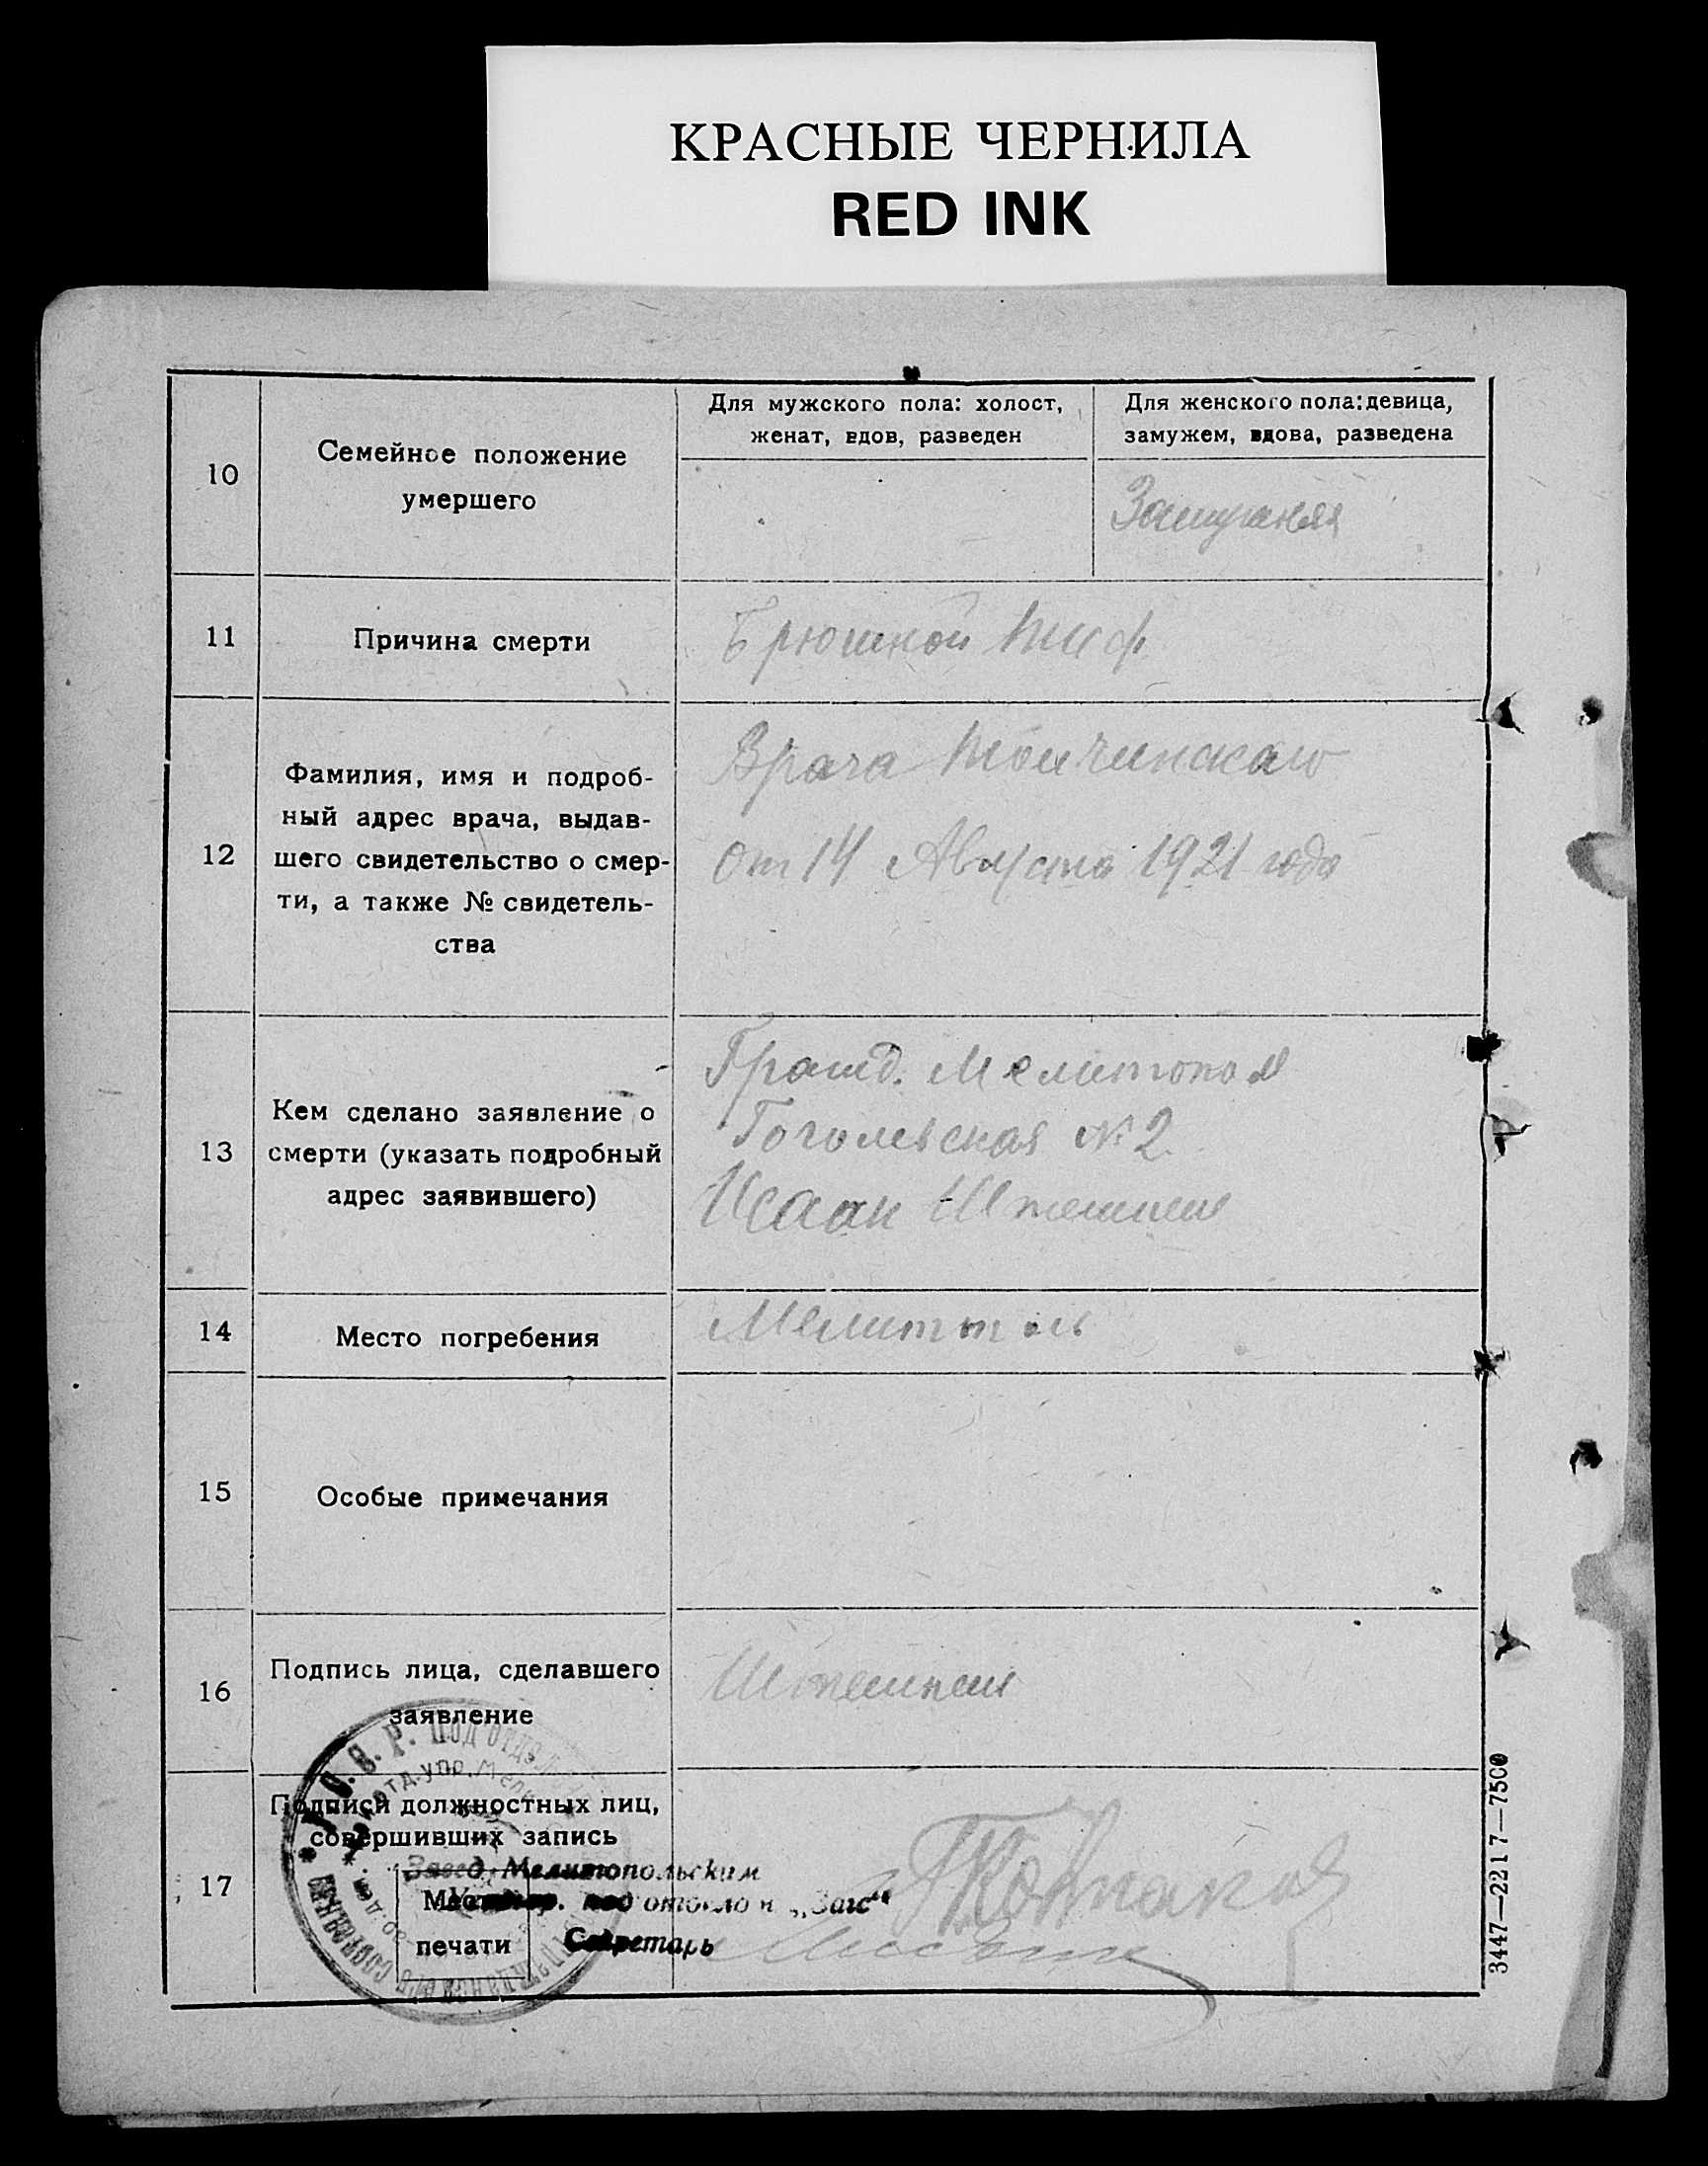 КРАСНЫЕ ЧЕРНИЛА
RED INK
10
Семейное положение
умершего
Для мужского пола: холост,
женат, вдов, разведен
Для женского пола: девица,
замужем, вдова, разведена
Замужняя
11
Причина смерти
Брюшной тиф
12
Фамилия, имя и подроб-
ный адрес врача, выдав-
шего свидетельство о смер-
ти, а также № свидетель-
ства
Врача
от 14 Августа 1921 года
13
Кем сделано заявление о
смерти (указать подробный
адрес заявившего)
Гражд. Мелитополя
Гоголевская № 2
Исаак
14
Место погребения
Мелитополь
15
Особые примечания
16
Подпись лица, сделавшего
заявление
17
Подписи должностных лиц,
совершивших запись
Завед. Мелитопольским
под отдело м „Загс“
Место
печати
Секретарь
3447—2217—7500